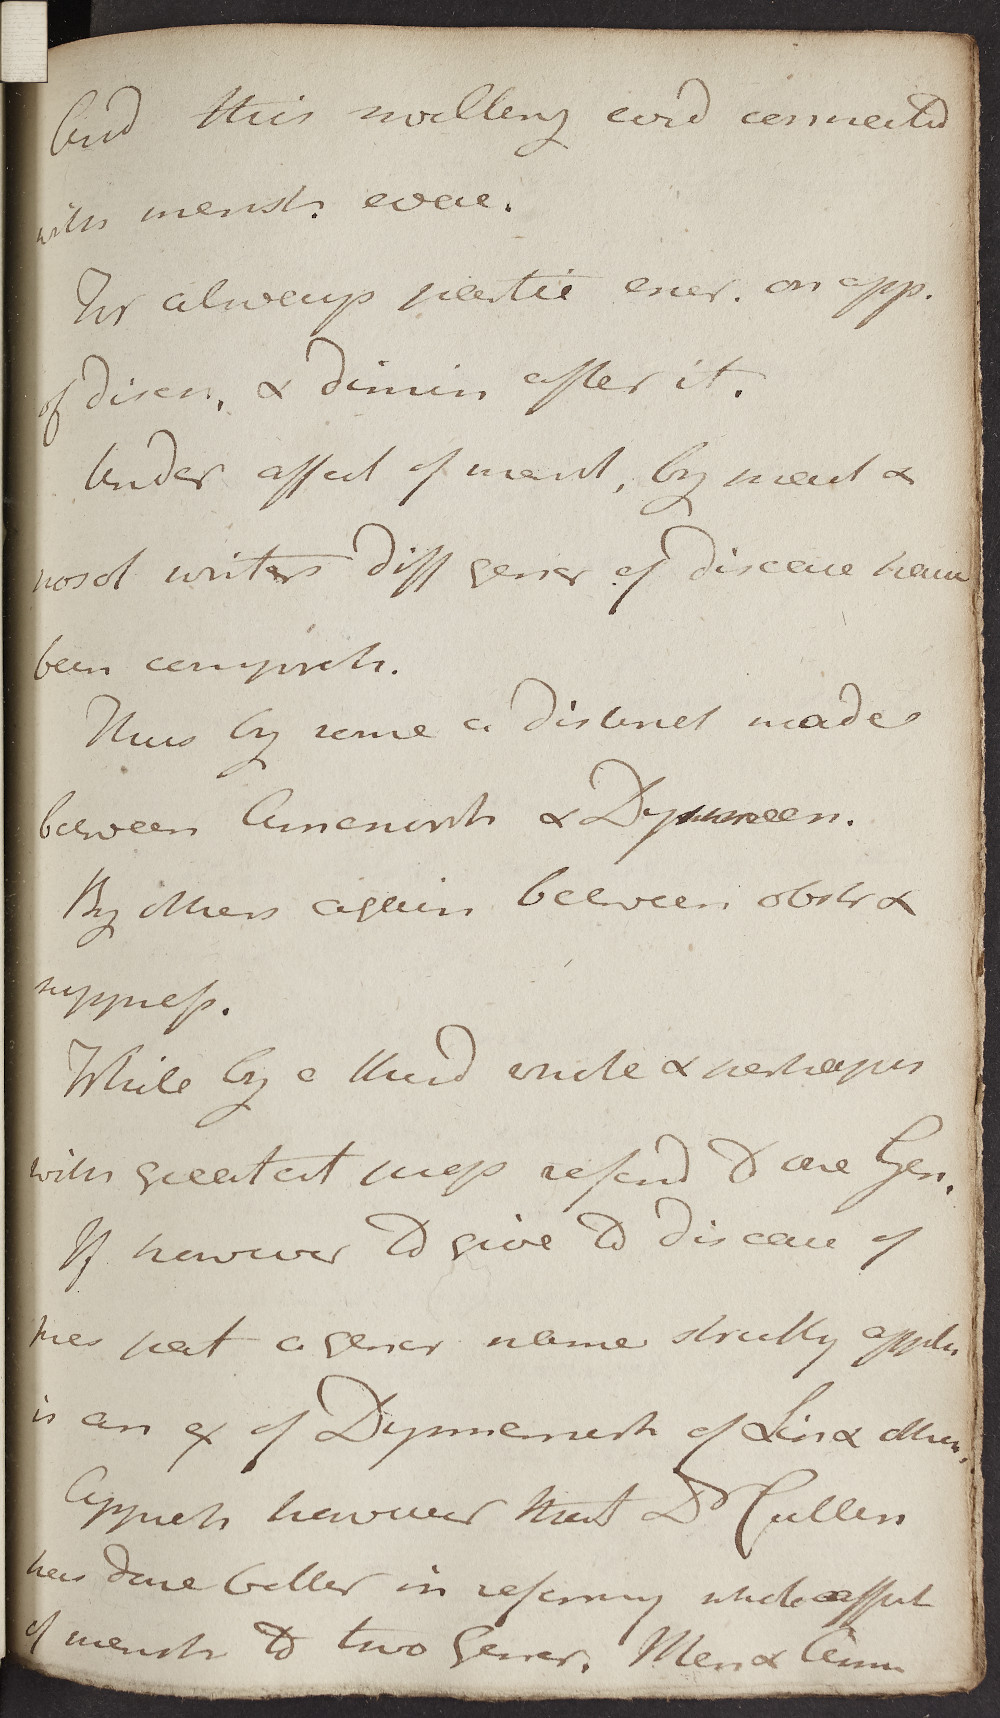 And this swelling evid connected
with menstr. evac.
For always partic encr. on app.
of disch, & dimin after it.
Under affect of menst, by med &
nosol writers diff gener of disease have
been compreh.
Thus by some a distinct made
between Amenorrh & Dysmen.
By others again between obstr &
suppress.
While by a third whole & perhaps
with greatest prop referd to one Gen.
If however to give to disease of
pres pat a gener name strictly applic
is an ex of Dysmenorrh of Lin & others.
Appreh however that Dr Cullen
has done better in referring whole affect
of menstr to two Gener. Men & Amen